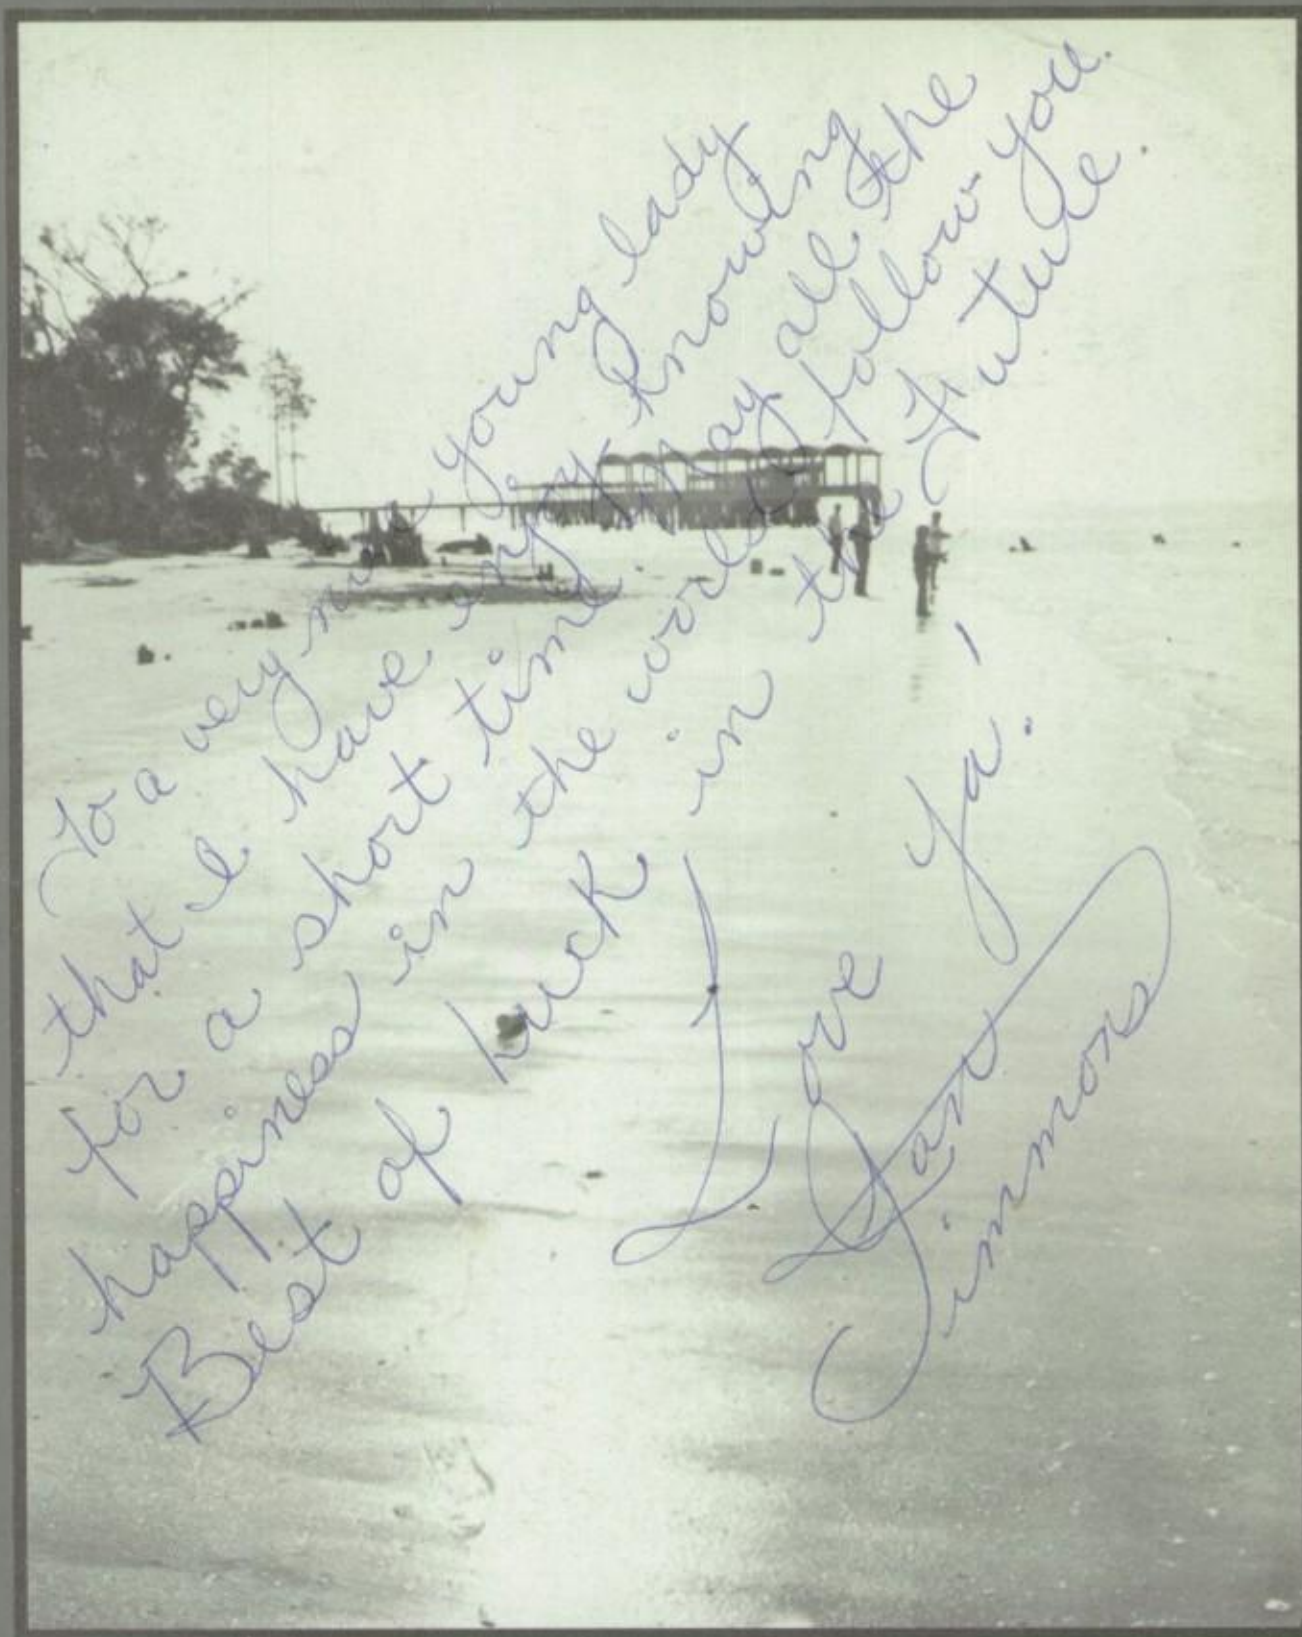 To a very nice young lady
that I have enjoy knowing
for a short time. May all the
happiness in the world follow you.
Best of luck in the Future.
Love ya!
Simmons